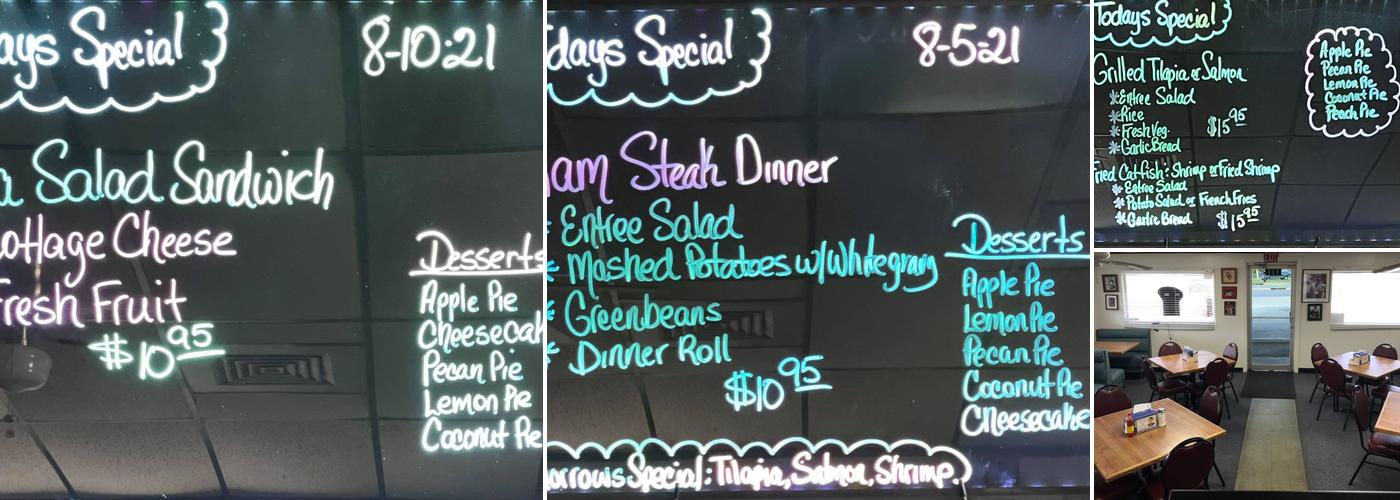 ays Special
8-10-21
a Salad Sandwich
ottage Cheese
Fresh Fruit
$10 95
Desserts
Apple Pie
Cheesecak
Pecan Pie
Lemon Pie
Coconut Pie
days Special
8-5-21
am Steak Dinner
* Entree Salad
* Mashed Potatoes w/White gravy
* Greenbeans
* Dinner Roll
$10 95
Desserts
Apple Pie
Lemon Pie
Pecan Pie
Coconut Pie
Cheesecake
orrows Special: Tilapia, Salmon, Shrimp.
Todays Special
Grilled Tilapia or Salmon
* Entree Salad
* Rice
* Fresh Veg.
* Garlic Bread
$15 95
Fried Catfish: Shrimp or Fried Shrimp
* Entree Salad
* Potato Salad or French Fries
* Garlic Bread
$15 95
Apple Pie
Pecan Pie
Lemon Pie
Coconut Pie
Peach Pie
EXIT